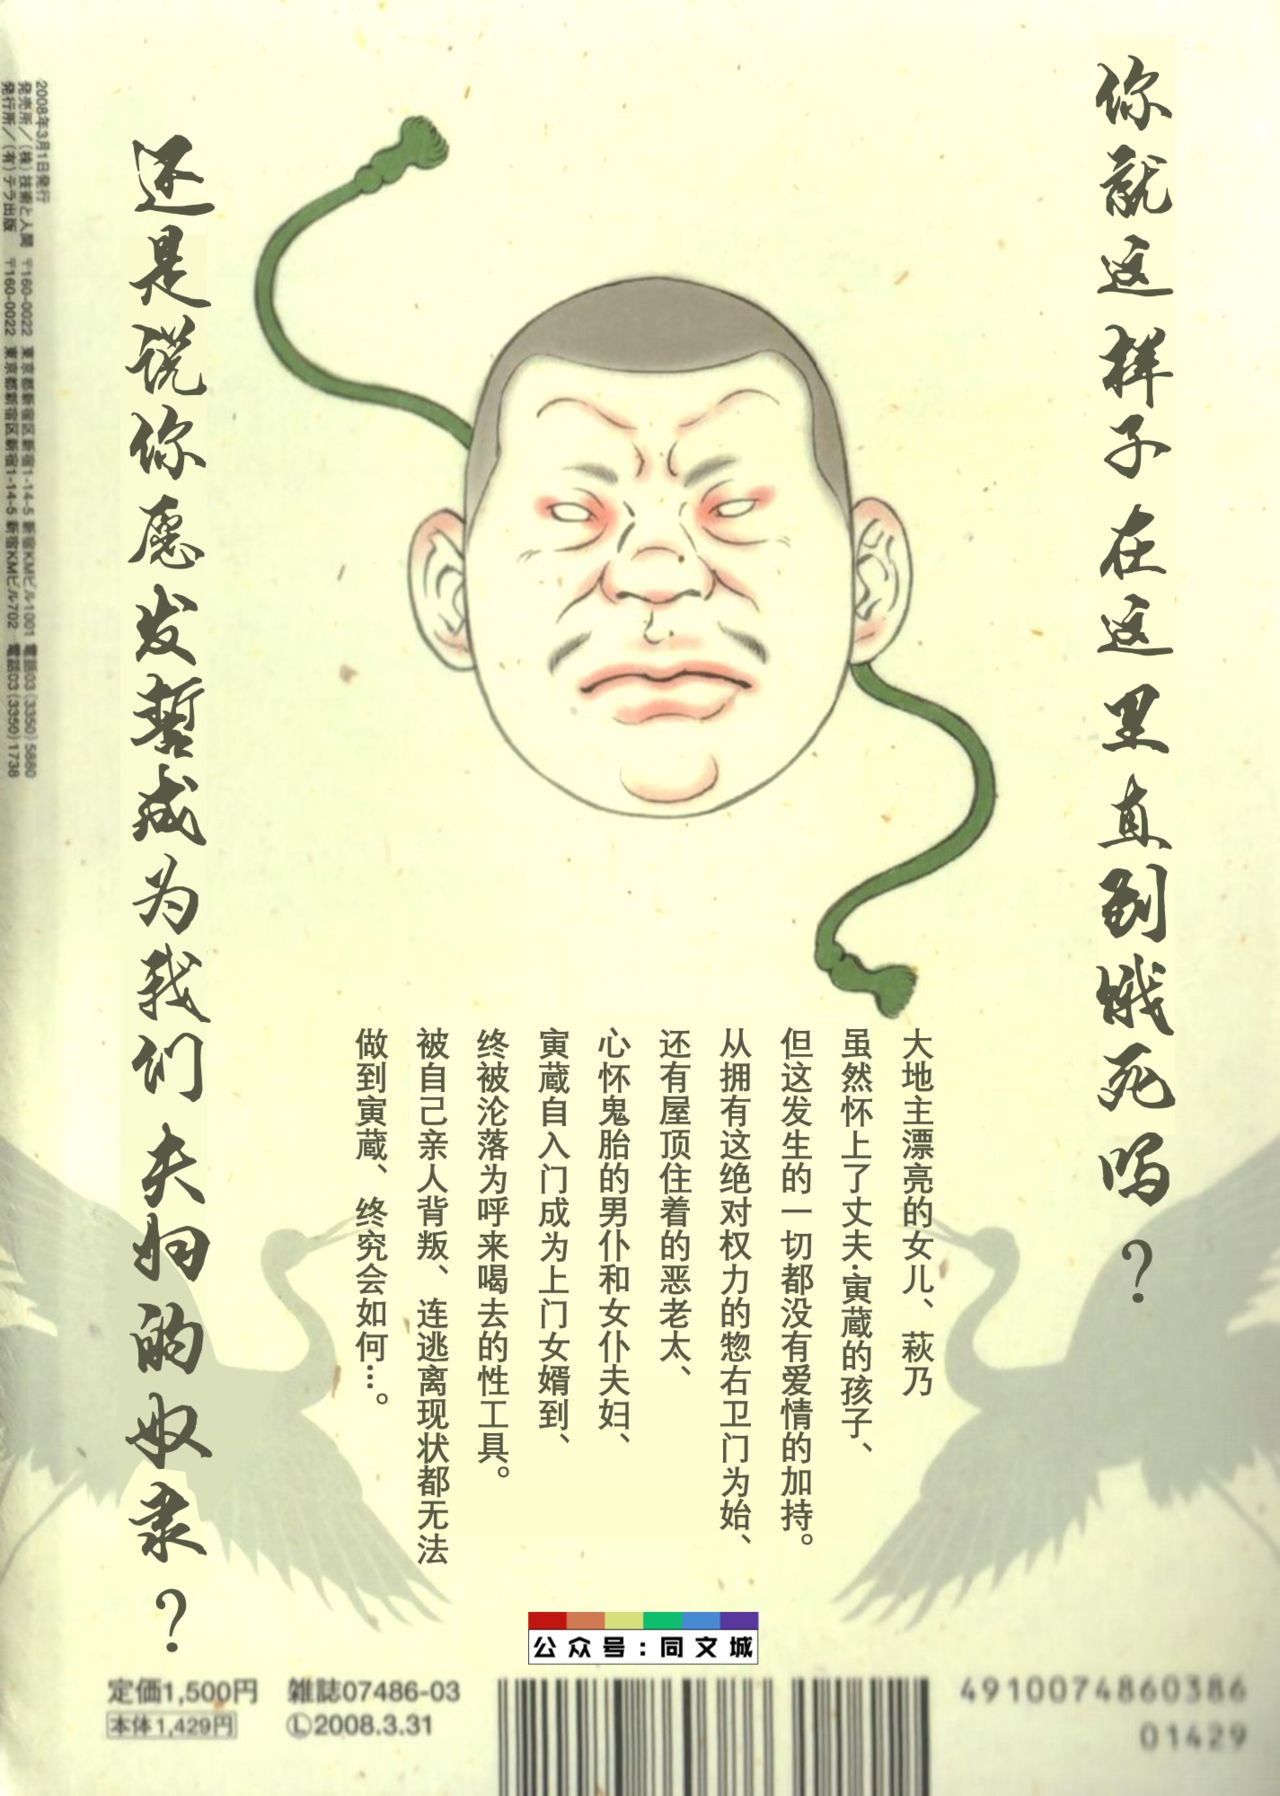 你就这样子在这里直到饿死吗?
大地主漂亮的女儿、萩乃
虽然怀上了丈夫·寅蔵的孩子、
但这发生的一切都没有爱情的加持。
从拥有这绝对权力的惣右卫门为始、
还有屋顶住着的恶老太、
心怀鬼胎的男仆和女仆夫妇、
寅蔵自入门成为上门女婿到、
终被沦落为呼来喝去的性工具。
被自己亲人背叛、连逃离现状都无法
做到寅蔵、终究会如何…。
还是说你愿发誓成为我们夫妇的奴隶?
2008年3月1日発行
発売所/(株)技術と人間 〒160-0022 東京都新宿区新宿1-14-5 新宿KMビル1001 電話03(3350)5880
発行所/(有)テラ出版 〒160-0022 東京都新宿区新宿1-14-5 新宿KMビル702 電話03(3350)1738
公众号:同文城
定価1,500円 雑誌07486-03
本体1,429円 Ⓛ2008.3.31
4910074860386
01429